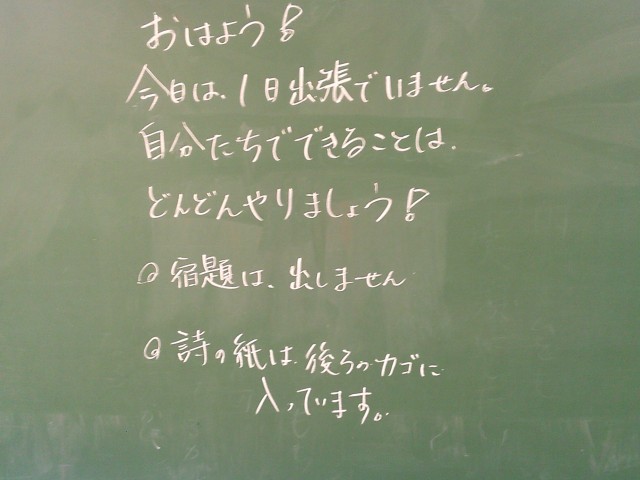 おはよう!
今日は、1日出張でいません。
自分たちでできることは、
どんどんやりましょう!
◎宿題は、出しません
◎詩の紙は後ろのカゴに
入っています。